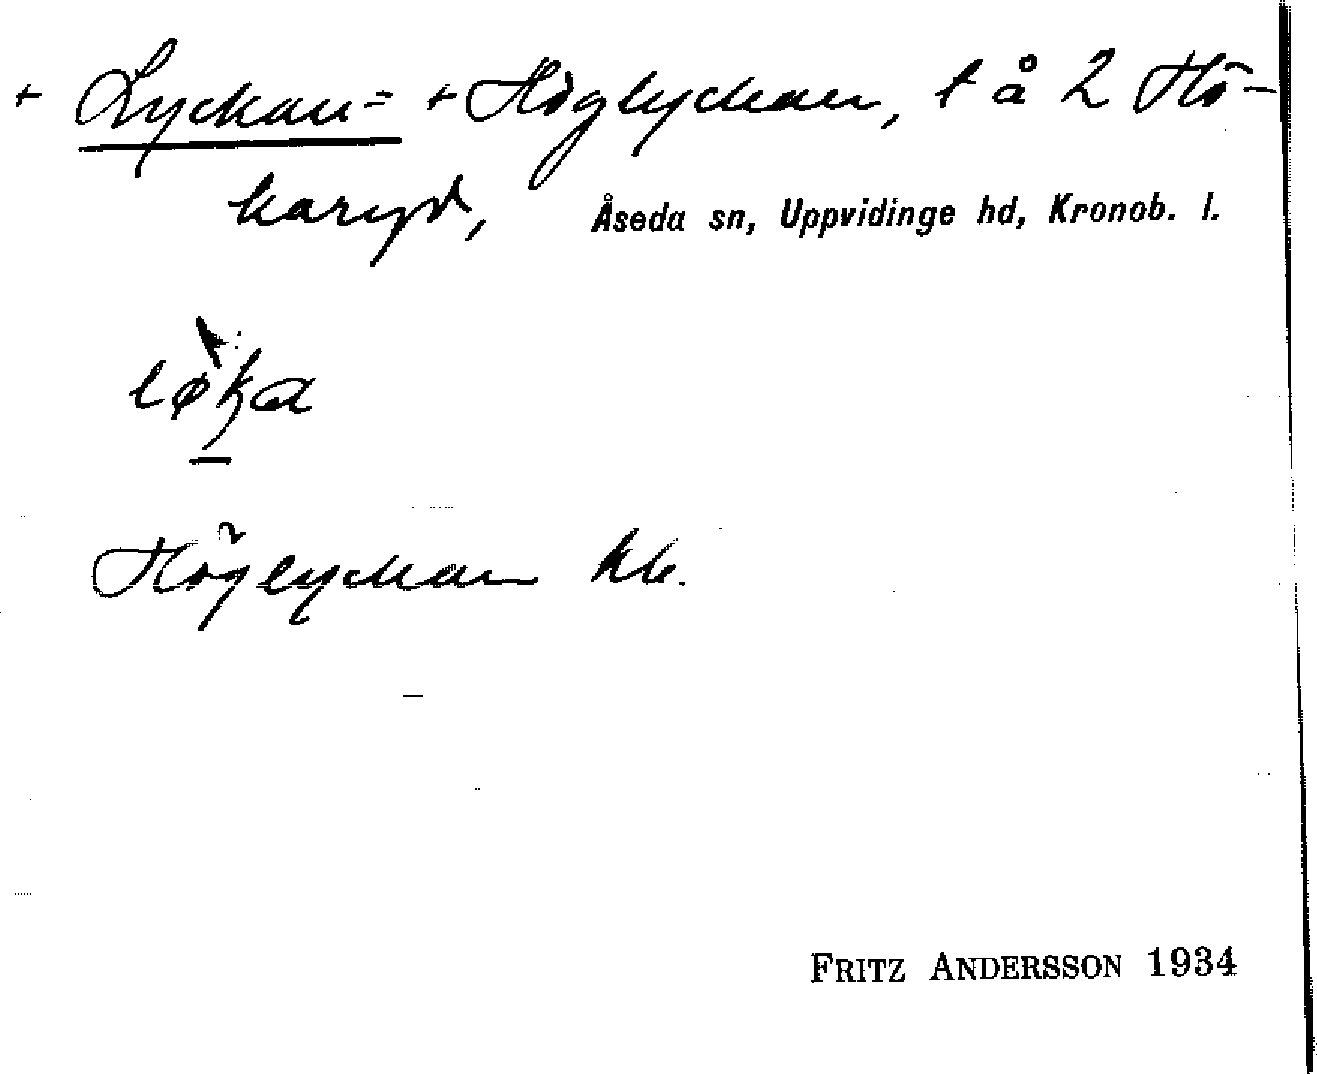 + Lyckan = + Höglyckan, t å 2 Hö-
karyd, Åseda sn, Uppvidinge hd, Kronob. l.
løka
Höglyckan kb.
FRITZ ANDERSSON 1934